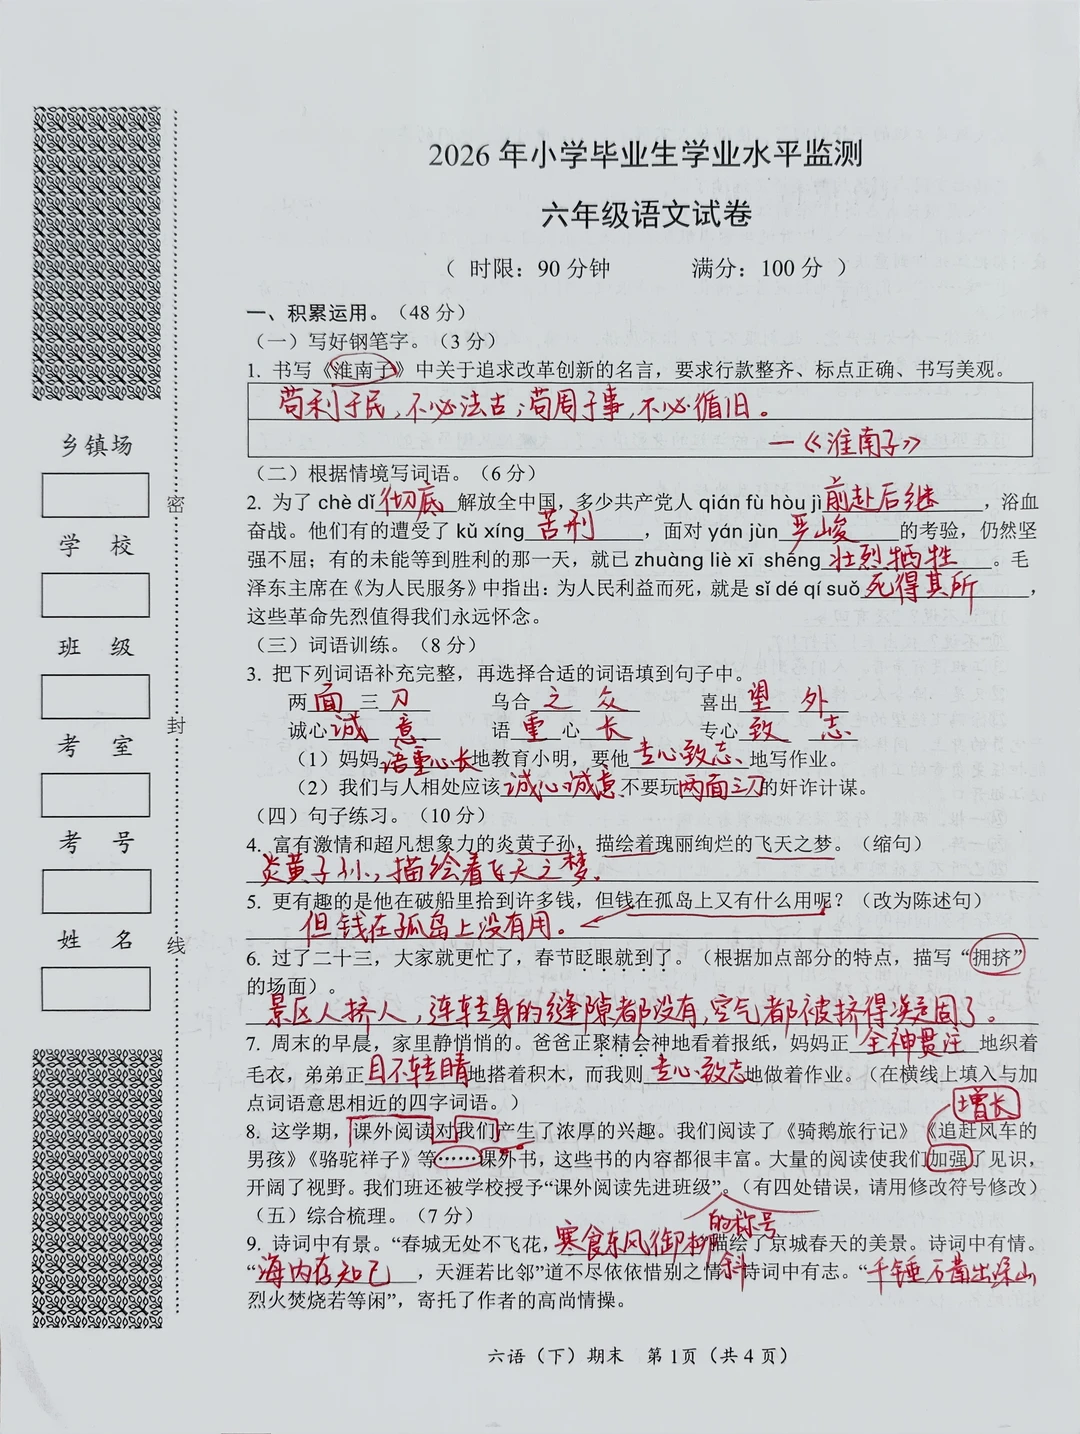 2026年小学毕业生学业水平监测
六年级语文试卷
（ 时限：90分钟 满分：100分 ）
乡镇场
学 校
班 级
考 室
考 号
姓 名
密
封
线
一、积累运用。（48分）
（一）写好钢笔字。（3分）
1. 书写《淮南子》中关于追求改革创新的名言，要求行款整齐、标点正确、书写美观。
苟利于民，不必法古；苟周于事，不必循旧。
—《淮南子》
（二）根据情境写词语。（6分）
2. 为了 chè dǐ 彻底 解放全中国，多少共产党人 qián fù hòu jì 前赴后继，浴血
奋战。他们有的遭受了 kǔ xíng 苦刑，面对 yán jùn 严峻 的考验，仍然坚
强不屈；有的未能等到胜利的那一天，就已 zhuàng liè xī shēng 壮烈牺牲。毛
泽东主席在《为人民服务》中指出：为人民利益而死，就是 sǐ dé qí suǒ 死得其所，
这些革命先烈值得我们永远怀念。
（三）词语训练。（8分）
3. 把下列词语补充完整，再选择合适的词语填到句子中。
两 面 三 刀 乌合 之 众 喜出 望 外
诚心 诚 意 语 重 心 长 专心 致 志
（1）妈妈 语重心长 地教育小明，要他 专心致志 地写作业。
（2）我们与人相处应该 诚心诚意 不要玩 两面三刀 的奸诈计谋。
（四）句子练习。（10分）
4. 富有激情和超凡想象力的炎黄子孙，描绘着瑰丽绚烂的飞天之梦。（缩句）
炎黄子孙，描绘着飞天之梦．
5. 更有趣的是他在破船里拾到许多钱，但钱在孤岛上又有什么用呢？（改为陈述句）
但钱在孤岛上没有用。
6. 过了二十三，大家就更忙了，春节眨眼就到了。（根据加点部分的特点，描写“拥挤”
的场面）。
景区人挤人，连转身的缝隙都没有，空气都被挤得凝固了。
7. 周末的早晨，家里静悄悄的。爸爸正聚精会神地看着报纸，妈妈正 全神贯注 地织着
毛衣，弟弟正 目不转睛 地搭着积木，而我则 专心致志 地做着作业。（在横线上填入与加
点词语意思相近的四字词语。）
增长
8. 这学期，课外阅读对我们产生了浓厚的兴趣。我们阅读了《骑鹅旅行记》《追赶风车的
男孩》《骆驼祥子》等……课外书，这些书的内容都很丰富。大量的阅读使我们加强了见识，
开阔了视野。我们班还被学校授予“课外阅读先进班级”。（有四处错误，请用修改符号修改）
的称号
（五）综合梳理。（7分）
9. 诗词中有景。“春城无处不飞花，寒食东风御柳斜 描绘了京城春天的美景。诗词中有情。
“海内存知己，天涯若比邻”道不尽依依惜别之情 诗词中有志。“千锤万凿出深山
烈火焚烧若等闲”，寄托了作者的高尚情操。
六语（下）期末 第1页（共4页）